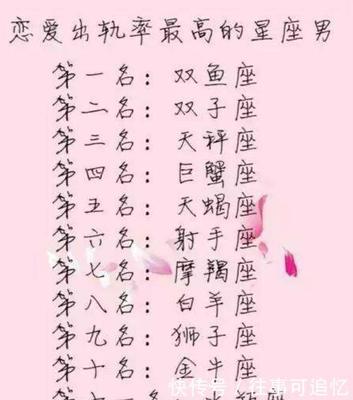 恋爱出轨率最高的星座男
第一名：双鱼座
第二名：双子座
第三名：天秤座
第四名：巨蟹座
第五名：天蝎座
第六名：射手座
第七名：摩羯座
第八名：白羊座
第九名：狮子座
第十名：金牛座
快传号/往事可追忆